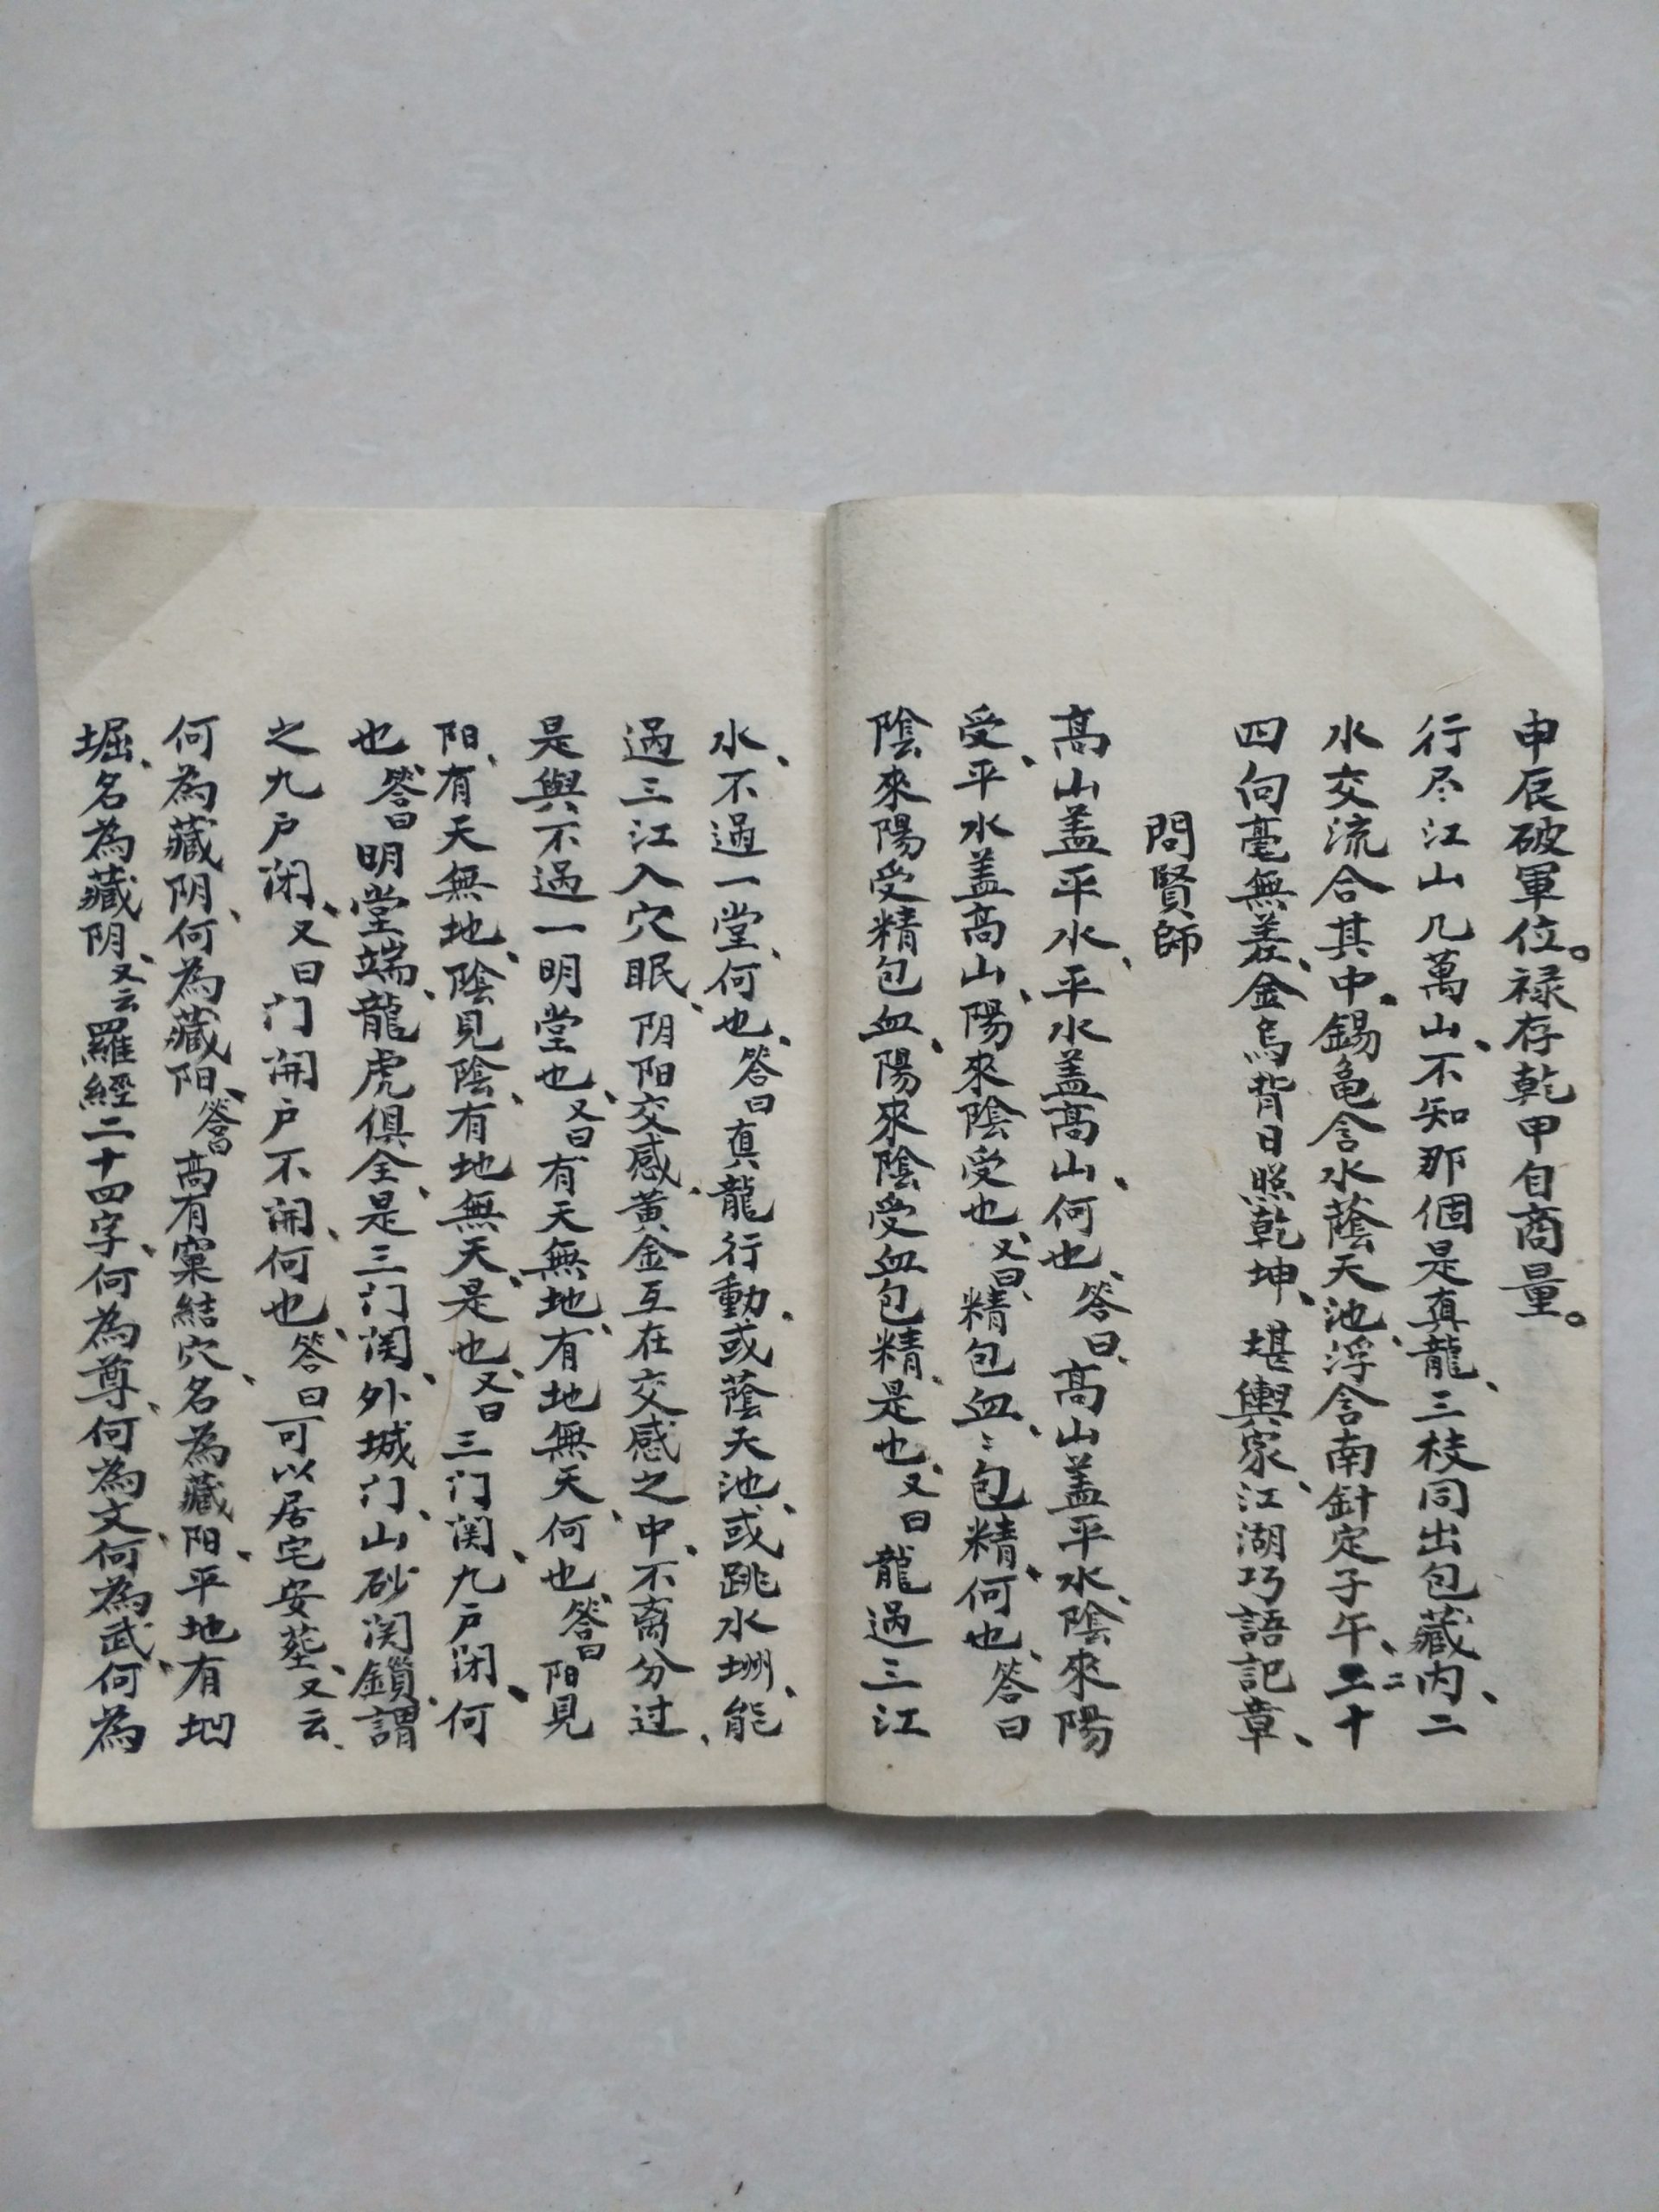 申辰破軍位。禄存乾甲自商量。
行尽江山几萬山、不知那個是真龍、三枝同出包藏内、二
水交流合其中、錫龟含水蔭天池、浮含南針定子午、二十
四向毫無差、金烏背日照乾坤、堪輿家、江湖巧語記章、
問賢師
高山盖平水、平水盖高山、何也、答曰、高山盖平水、陰來陽
受、平水盖高山、陽來陰受也、又曰、精包血、々包精、何也、答曰
陰來陽受精包血、陽來陰受血包精、是也、又曰龍過三江
水、不過一堂、何也、答曰真龍行動、或蔭天池、或跳水坳、能
過三江入穴眠、阴阳交感、黄金互在交感之中、不离分过、
是與不過一明堂也、又曰有天無地、有地無天、何也、答曰阳見
阳、有天無地、陰見陰、有地無天、是也、又曰三门関、九户闭、何
也、答曰明堂端、龍虎俱全、是三门関、外城门、山砂関鎖、謂
之九户闭、又曰门開户不開、何也、答曰可以居宅安塟、又云、
何為藏阴、何為藏阳、答曰高有窠結穴、名為藏阳、平地有凹
堀、名為藏阴、又云羅經二十四字、何為尊、何為文、何為武、何為